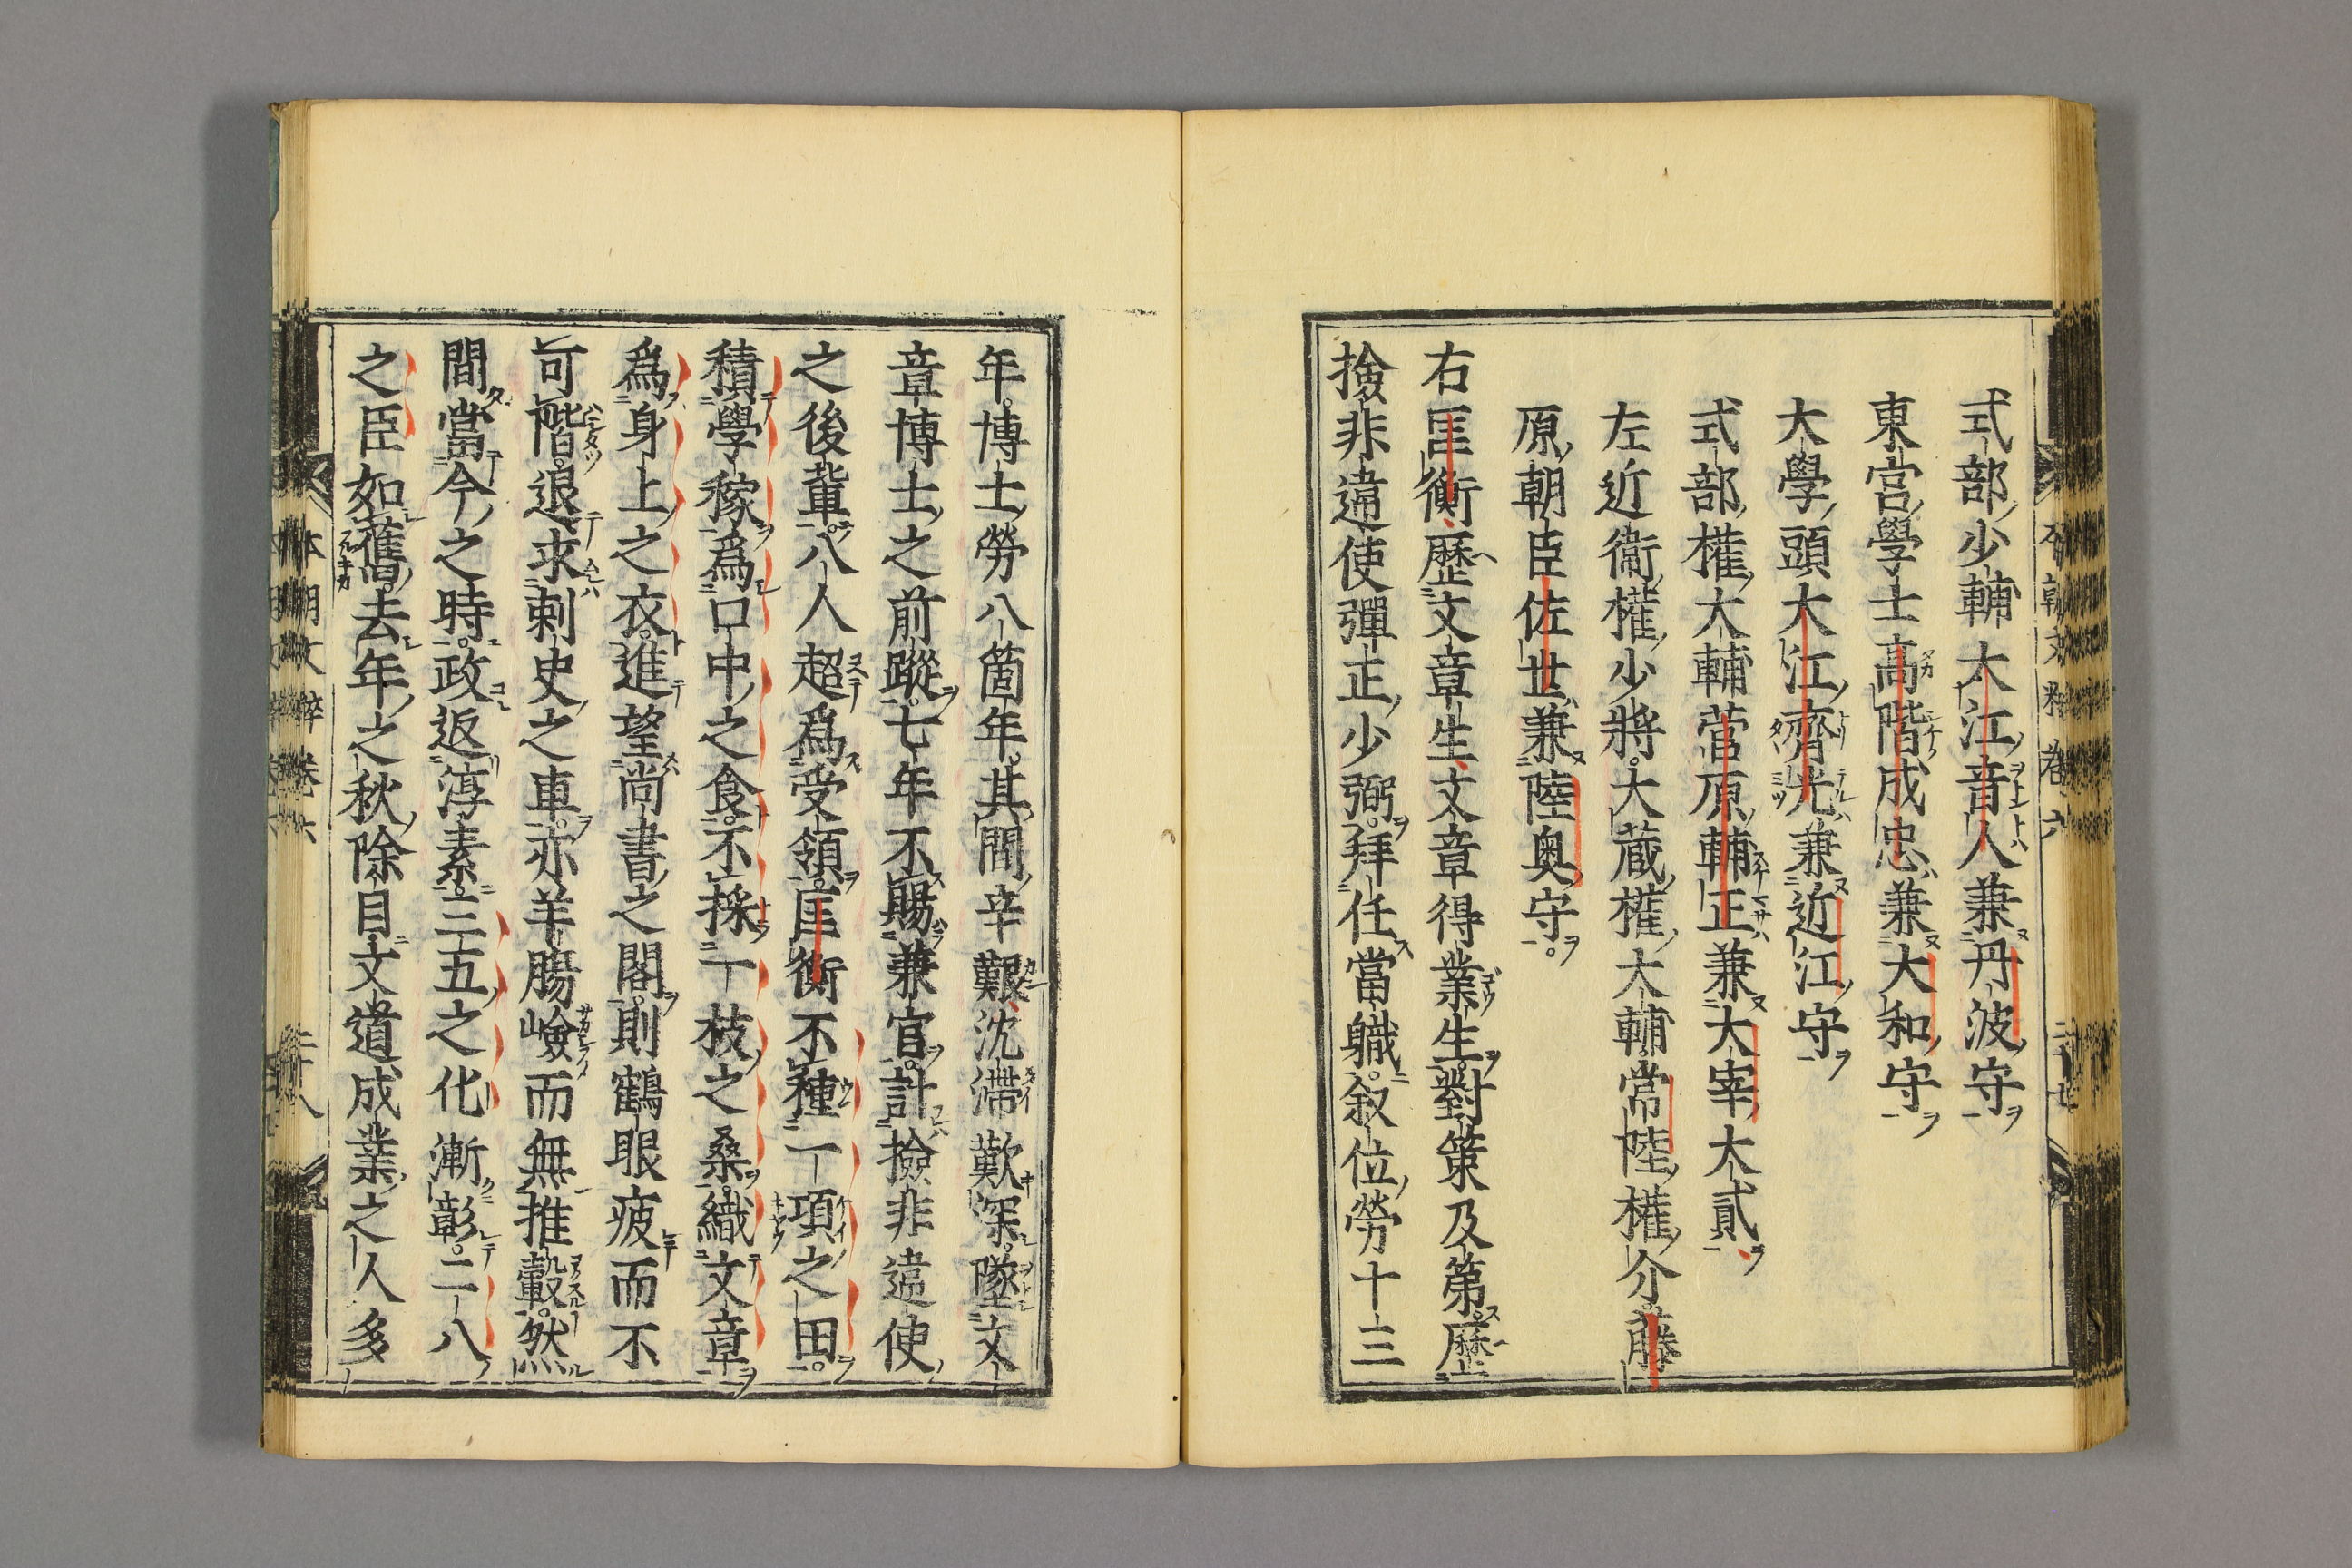 式部少輔大江音人兼丹波守
東宮學士高階成忠兼大和守
大學頭大江濟光兼近江守
式部權大輔菅原輔正兼大宰大貳
左近衞權少將大蔵權大輔常陸權介藤
原朝臣佐世兼陸奥守。
右匡衡歷文章生文章得業生對策及第歷
撿非違使彈正少弼拜任當職叙位勞十三
年博士勞八箇年其間辛艱沈滯歎深墜文
章博士之前蹤七年不賜兼官計撿非違使
之後輩八人超爲受領匡衡不種一項之田
積學稼爲口中之食不採一枝之桑織文章
爲身上之衣進望尚書之閣則鶴眼疲而不
可階退求刺史之車亦羊腸嶮而無推轂然
間當今之時政返淳素三五之化漸彰二八
之臣如舊去年之秋除目文道成業之人多
本朝文粹卷六
二十八